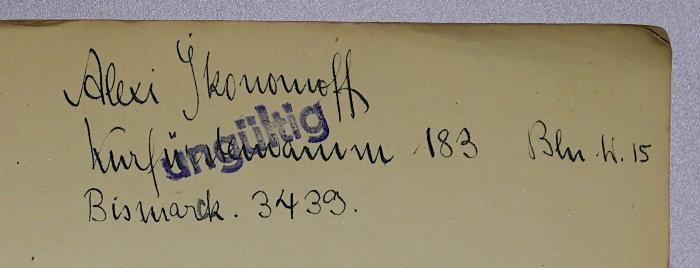 Alexi Ikonomoff
ungültig
Kurfürstendamm 183 Bln. W. 15
Bismarck. 3439.